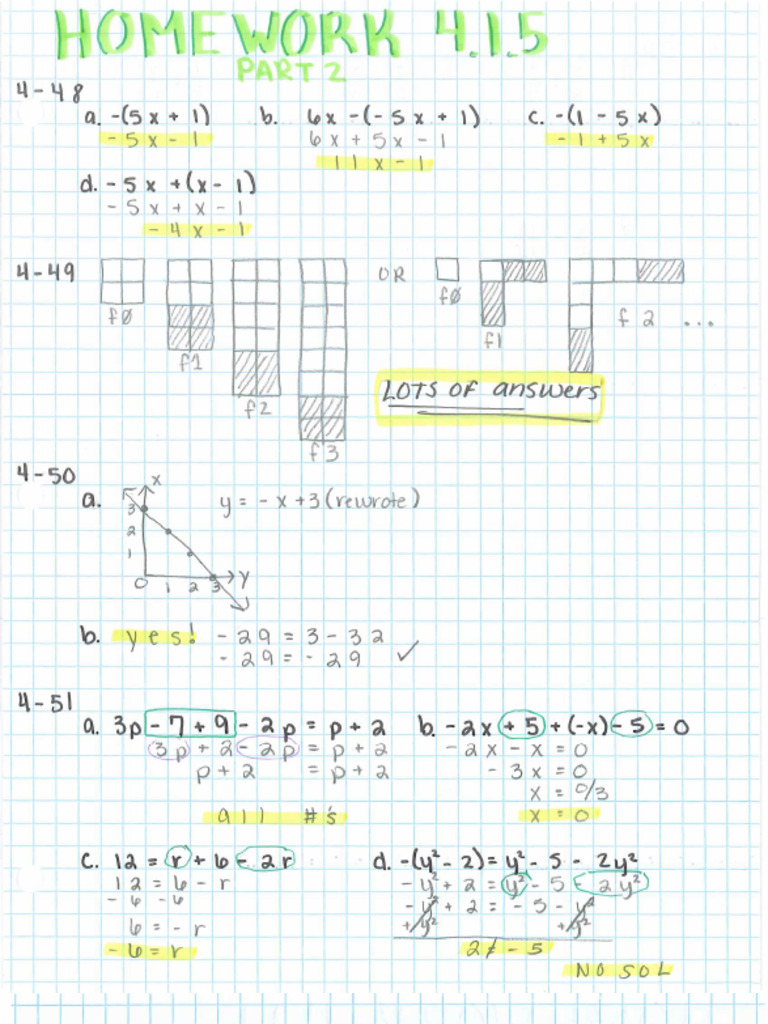 HOMEWORK 4.1.5
PART 2
4-48
a. -(5x + 1) b. 6x -(-5x + 1) c. -(1 - 5x)
-5x - 1 6x + 5x - 1 -1 + 5x
11x - 1
d. -5x +(x - 1)
-5x + x - 1
-4x - 1
4-49 OR
f0 f1 f2 f3 f0 f1 f2 ...
LOTS OF answers
4-50
a. y = -x +3 (rewrote)
x
3
2
1
0 1 2 3 y
b. yes! -29 = 3 - 32
-29 = -29 ✓
4-51
a. 3p - 7 + 9 - 2p = p + 2 b. -2x + 5 + (-x) - 5 = 0
3p + 2 - 2p = p + 2 -2x - x = 0
p + 2 = p + 2 -3x = 0
x = 0/3
all #'s x = 0
c. 12 = r + 6 - 2r d. -(y² - 2) = y² - 5 - 2y²
12 = 6 - r -y² + 2 = y² - 5 - 2y²
-6 -6 -y² + 2 = -5 - y²
6 = -r +y² +y²
-6 = r 2 ≠ -5
NO SOL